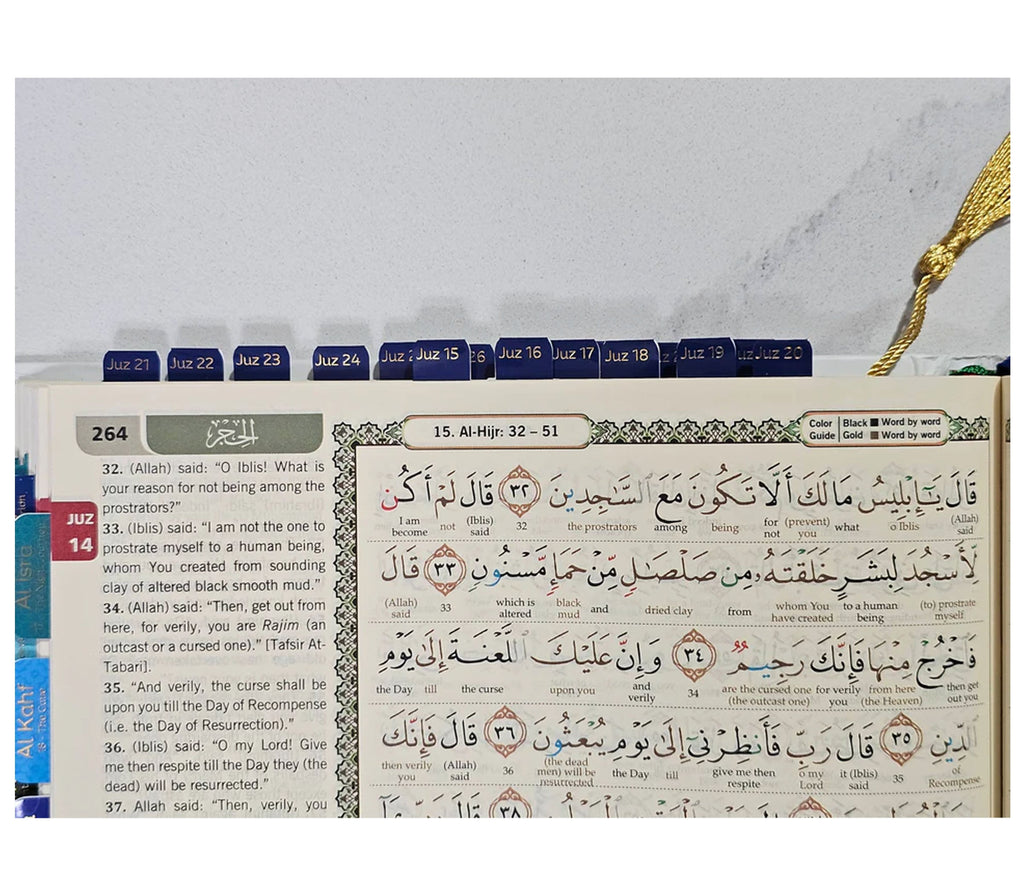 Juz 21
Juz 22
Juz 23
Juz 24
Juz
Juz 15
26
Juz 16
Juz 17
Juz 18
Juz 19
Juz 20
264
الحجر
15. Al-Hijr: 32 – 51
Color Guide
Black Word by word
Gold Word by word
32. (Allah) said: “O Iblis! What is
your reason for not being among the
prostrators?”
33. (Iblis) said: “I am not the one to
prostrate myself to a human being,
whom You created from sounding
clay of altered black smooth mud.”
34. (Allah) said: “Then, get out from
here, for verily, you are Rajim (an
outcast or a cursed one).” [Tafsir At-
Tabari].
35. “And verily, the curse shall be
upon you till the Day of Recompense
(i.e. the Day of Resurrection).”
36. (Iblis) said: “O my Lord! Give
me then respite till the Day they (the
dead) will be resurrected.”
37. Allah said: “Then, verily, you
JUZ
14
Al Isra
Al Kahf
قَالَ يَٰٓإِبْلِيسُ مَا لَكَ أَلَّا تَكُونَ مَعَ ٱلسَّٰجِدِينَ ٣٢ قَالَ لَمْ أَكُن
(Allah) said o Iblis what (prevent) you for not being among the prostrators 32 (Iblis) said not I am become
لِّأَسْجُدَ لِبَشَرٍ خَلَقْتَهُۥ مِن صَلْصَٰلٍ مِّنْ حَمَإٍ مَّسْنُونٍ ٣٣ قَالَ
(to) prostrate myself to a human being whom You have created from dried clay and black mud which is altered 33 (Allah) said
فَٱخْرُجْ مِنْهَا فَإِنَّكَ رَجِيمٌ ٣٤ وَإِنَّ عَلَيْكَ ٱللَّعْنَةَ إِلَىٰ يَوْمِ
then get out you from here (the Heaven) for verily you are the cursed one (the outcast one) 34 and verily upon you the curse till the Day
ٱلدِّينِ ٣٥ قَالَ رَبِّ فَأَنظِرْنِىٓ إِلَىٰ يَوْمِ يُبْعَثُونَ ٣٦ قَالَ فَإِنَّكَ
of Recompense 35 it (Iblis) said o my Lord give me then respite till the Day (the dead men) will be resurrected 36 (Allah) said then verily you
٣٨